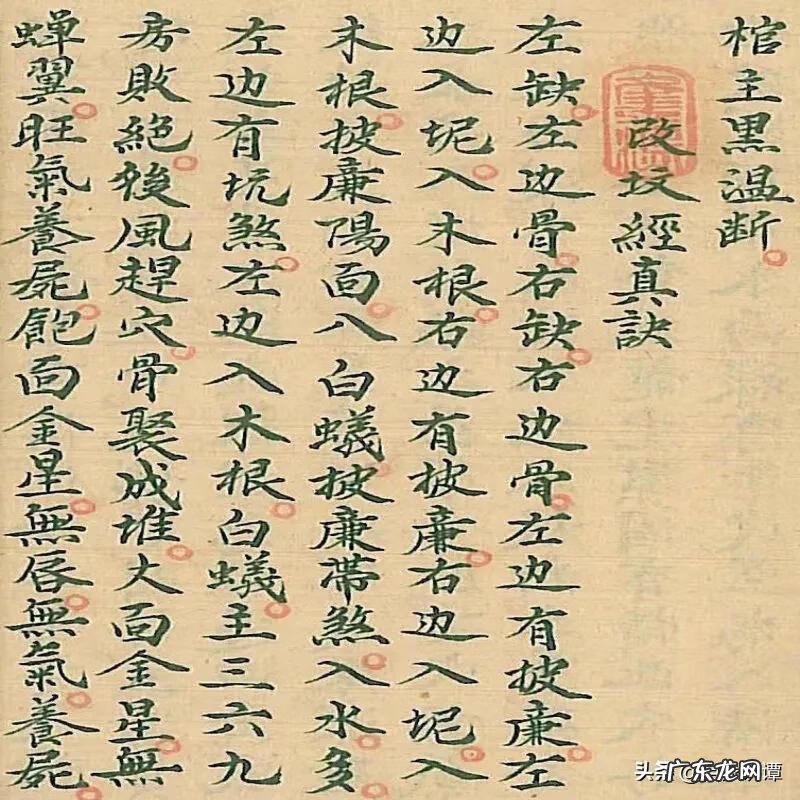 棺主黑温断
改坟經真訣
左缺左边骨右缺右边骨左边有披廉左
边入坭入木根右边有披廉右边入坭入
木根披廉陽面八白蟻披廉帶煞入水多
左边有坑煞左边入木根白蟻主三六九
房敗絕後風趕穴骨聚成堆大面金星無
蝉翼旺氣養屍飽面金星無唇無氣養屍
头条
广东龙网
潭